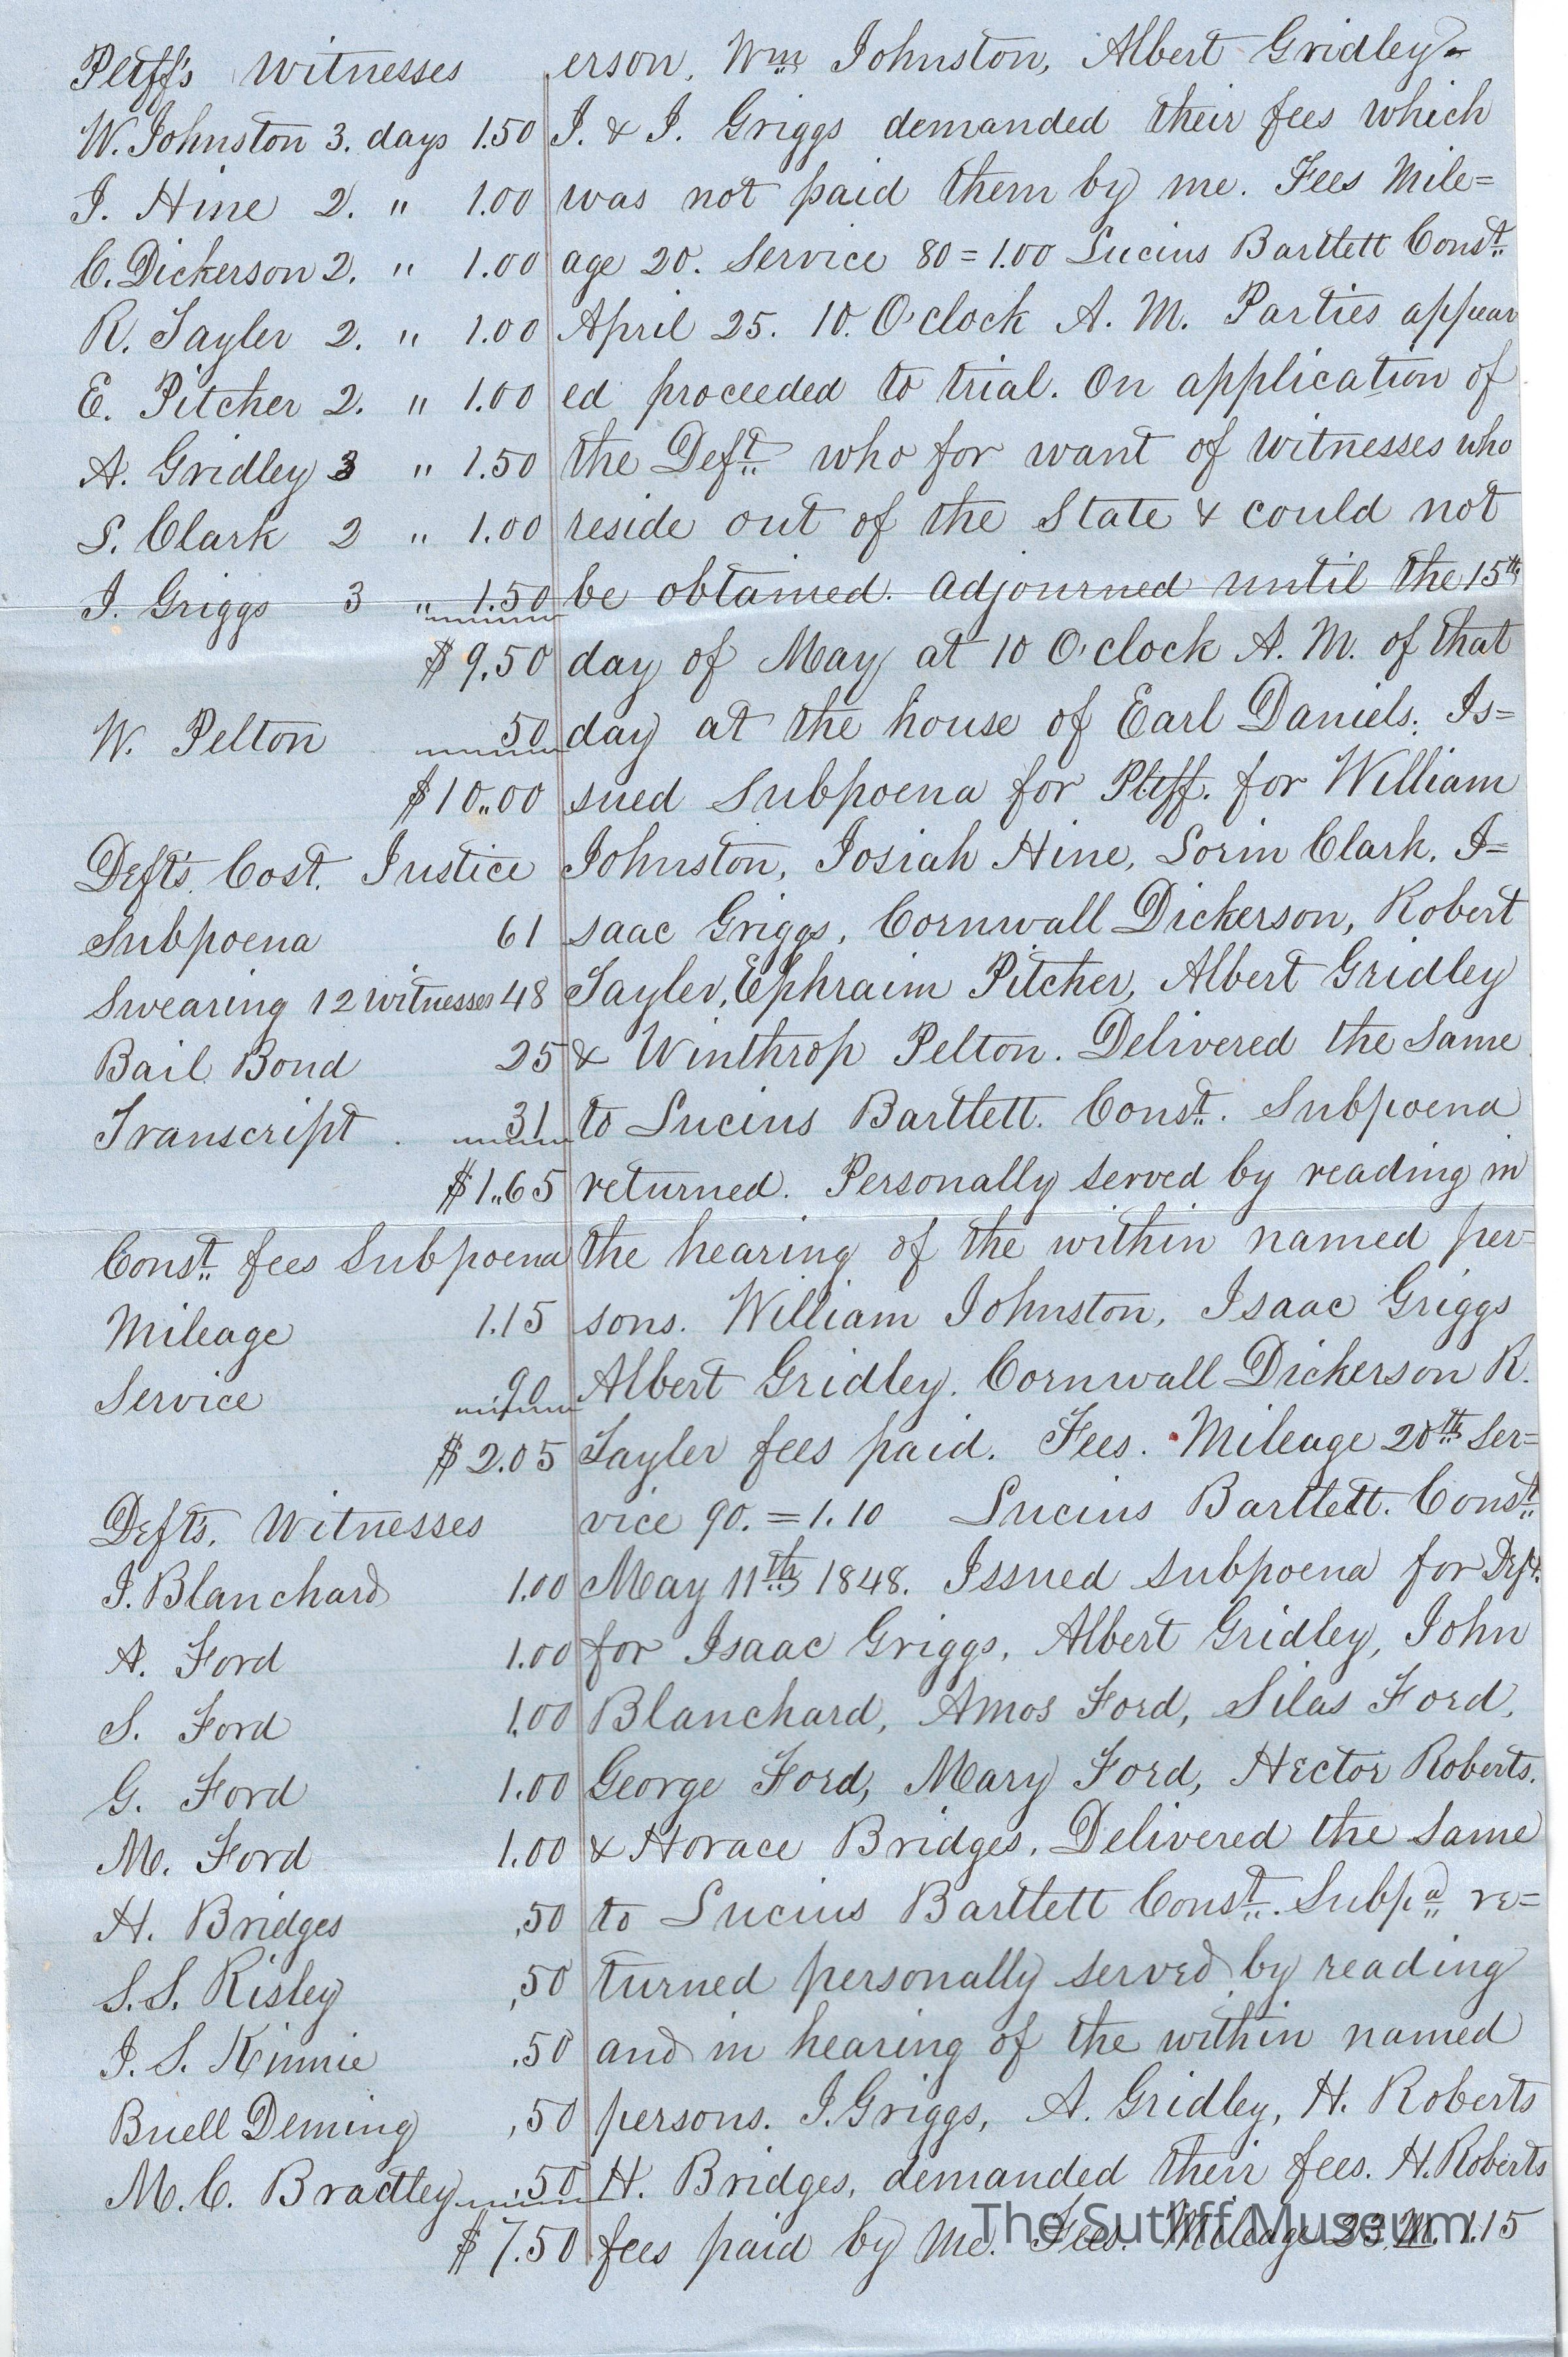 Pltff's Witnesses
W. Johnston 3. days 1.50
J. Hine 2. " 1.00
C. Dickerson 2. " 1.00
R. Tayler 2. " 1.00
E. Pitcher 2. " 1.00
A. Gridley 3 " 1.50
S. Clark 2 " 1.00
I. Griggs 3 " 1.50
$9.50
W. Pelton 50
$10..00
Deft's. Cost. Justice
Subpoena 61
Swearing 12 witnesses 48
Bail Bond 25
Transcript . 31
$1..65
Const. fees Subpoena
Mileage 1.15
Service .90
$2.05
Deft's. Witnesses
J. Blanchard 1.00
A. Ford 1.00
S. Ford 1.00
G. Ford 1.00
M. Ford 1.00
H. Bridges ,50
S. S. Risley ,50
J. S. Kinnie ,50
Buell Deming ,50
M. C. Bradley .50
$7.50
erson, Wm Johnston, Albert Gridley-
J. & I. Griggs demanded their fees which
was not paid them by me. Fees Mile=
age 20. Service 80 = 1.00 Lucius Bartlett Const.
April 25. 10. O'clock A. M. Parties appear
ed proceeded to trial. On application of
the Deft. who for want of witnesses who
reside out of the State & could not
be obtained. adjourned until the 15th
day of May at 10 O'clock A. M. of that
day at the house of Earl Daniels. Is=
sued Subpoena for Pltff. for William
Johnston, Josiah Hine, Lorin Clark. I=
saac Griggs, Cornwall Dickerson, Robert
Tayler, Ephraim Pitcher, Albert Gridley
& Winthrop Pelton. Delivered the same
to Lucius Bartlett. Const. Subpoena
returned. Personally served by reading in
the hearing of the within named per=
sons. William Johnston, Isaac Griggs
Albert Gridley. Cornwall Dickerson R.
Tayler fees paid. Fees. Mileage 20th Ser=
vice 90. = 1.10 Lucius Bartlett. Const.
May 11th 1848. Issued subpoena for Deft.
for Isaac Griggs, Albert Gridley, John
Blanchard, Amos Ford, Silas Ford,
George Ford, Mary Ford, Hector Roberts.
& Horace Bridges. Delivered the same
to Lucius Bartlett Const. Subpa re=
turned personally served by reading
and in hearing of the within named
persons. I. Griggs, A. Gridley, H. Roberts
H. Bridges, demanded their fees. H. Roberts
fees paid by Me. Fees. Mileage 23. M. 1.15
The Sutliff Museum